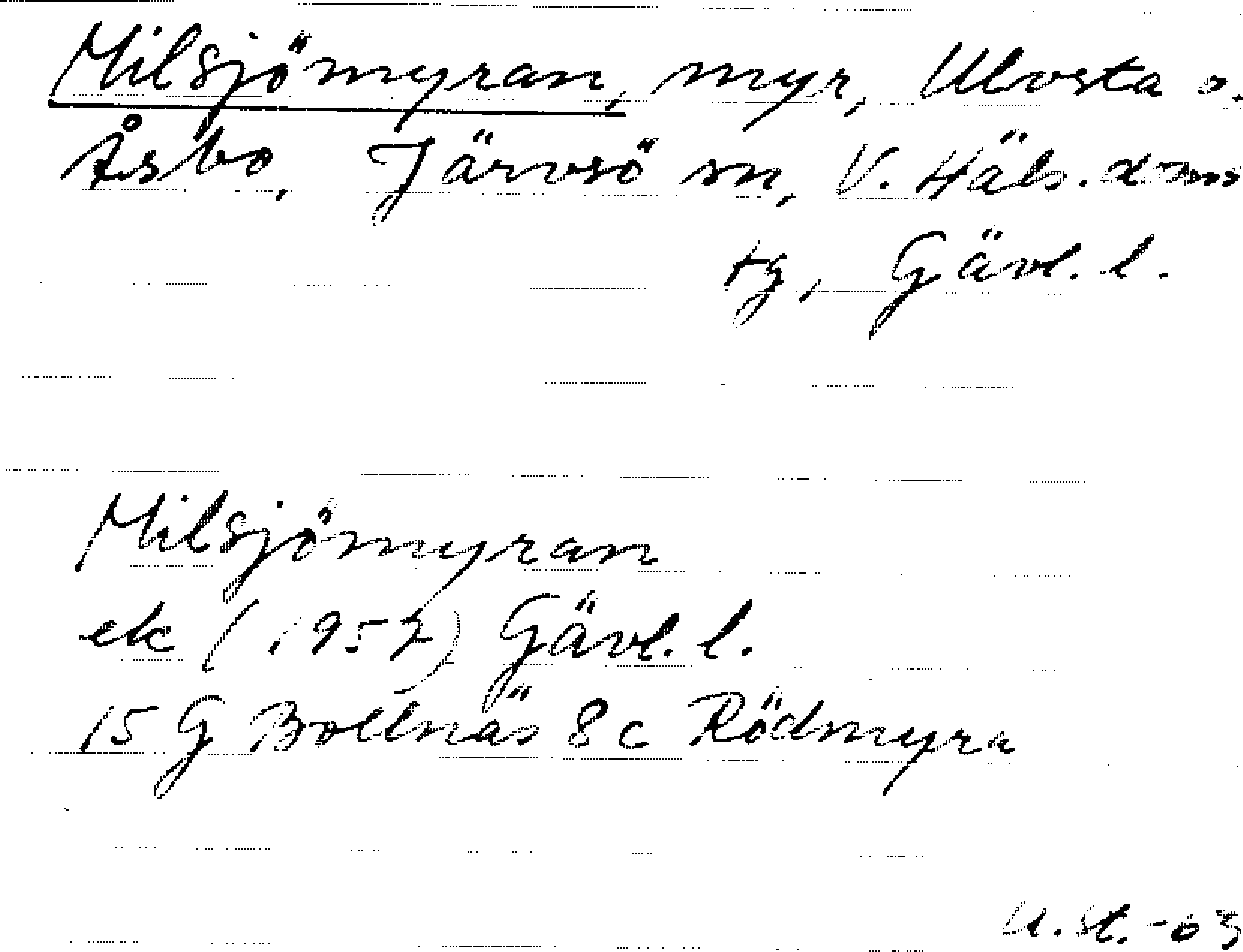 Milsjömyran, myr, Ulvsta o.
Åsbo, Järvsö sn, V. Häls. doms
tg, Gävl. l.
Milsjömyran
ek (1957) Gävl. l.
15 G Bollnäs 8 c Rödmyra
U. St. -63